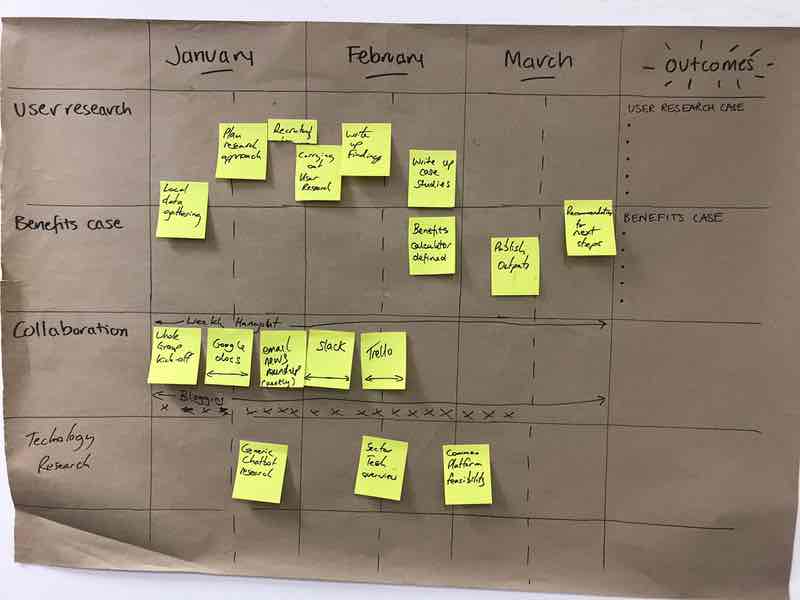 January
February
March
OUTCOMES
User research
Plan
research
approach
Recruiting
Carrying
out
User
Research
Write
up
Findings
Write up
case
studies
USER RESEARCH CASE
Local
data
gathering
Benefits case
Benefits
calculator
defined
Publish
Outputs
Recommendations
for
next
steps
BENEFITS CASE
Collaboration
Weekly Hangout
Whole
Group
Kick-off
Google
docs
email
news
roundup
Slack
Trello
Blogging
x x x x x x x x x x x x x x x x x x
Techology
Research
Generic
Chatbot
research
Sector
Tech
overview
Common
Platform
feasibility